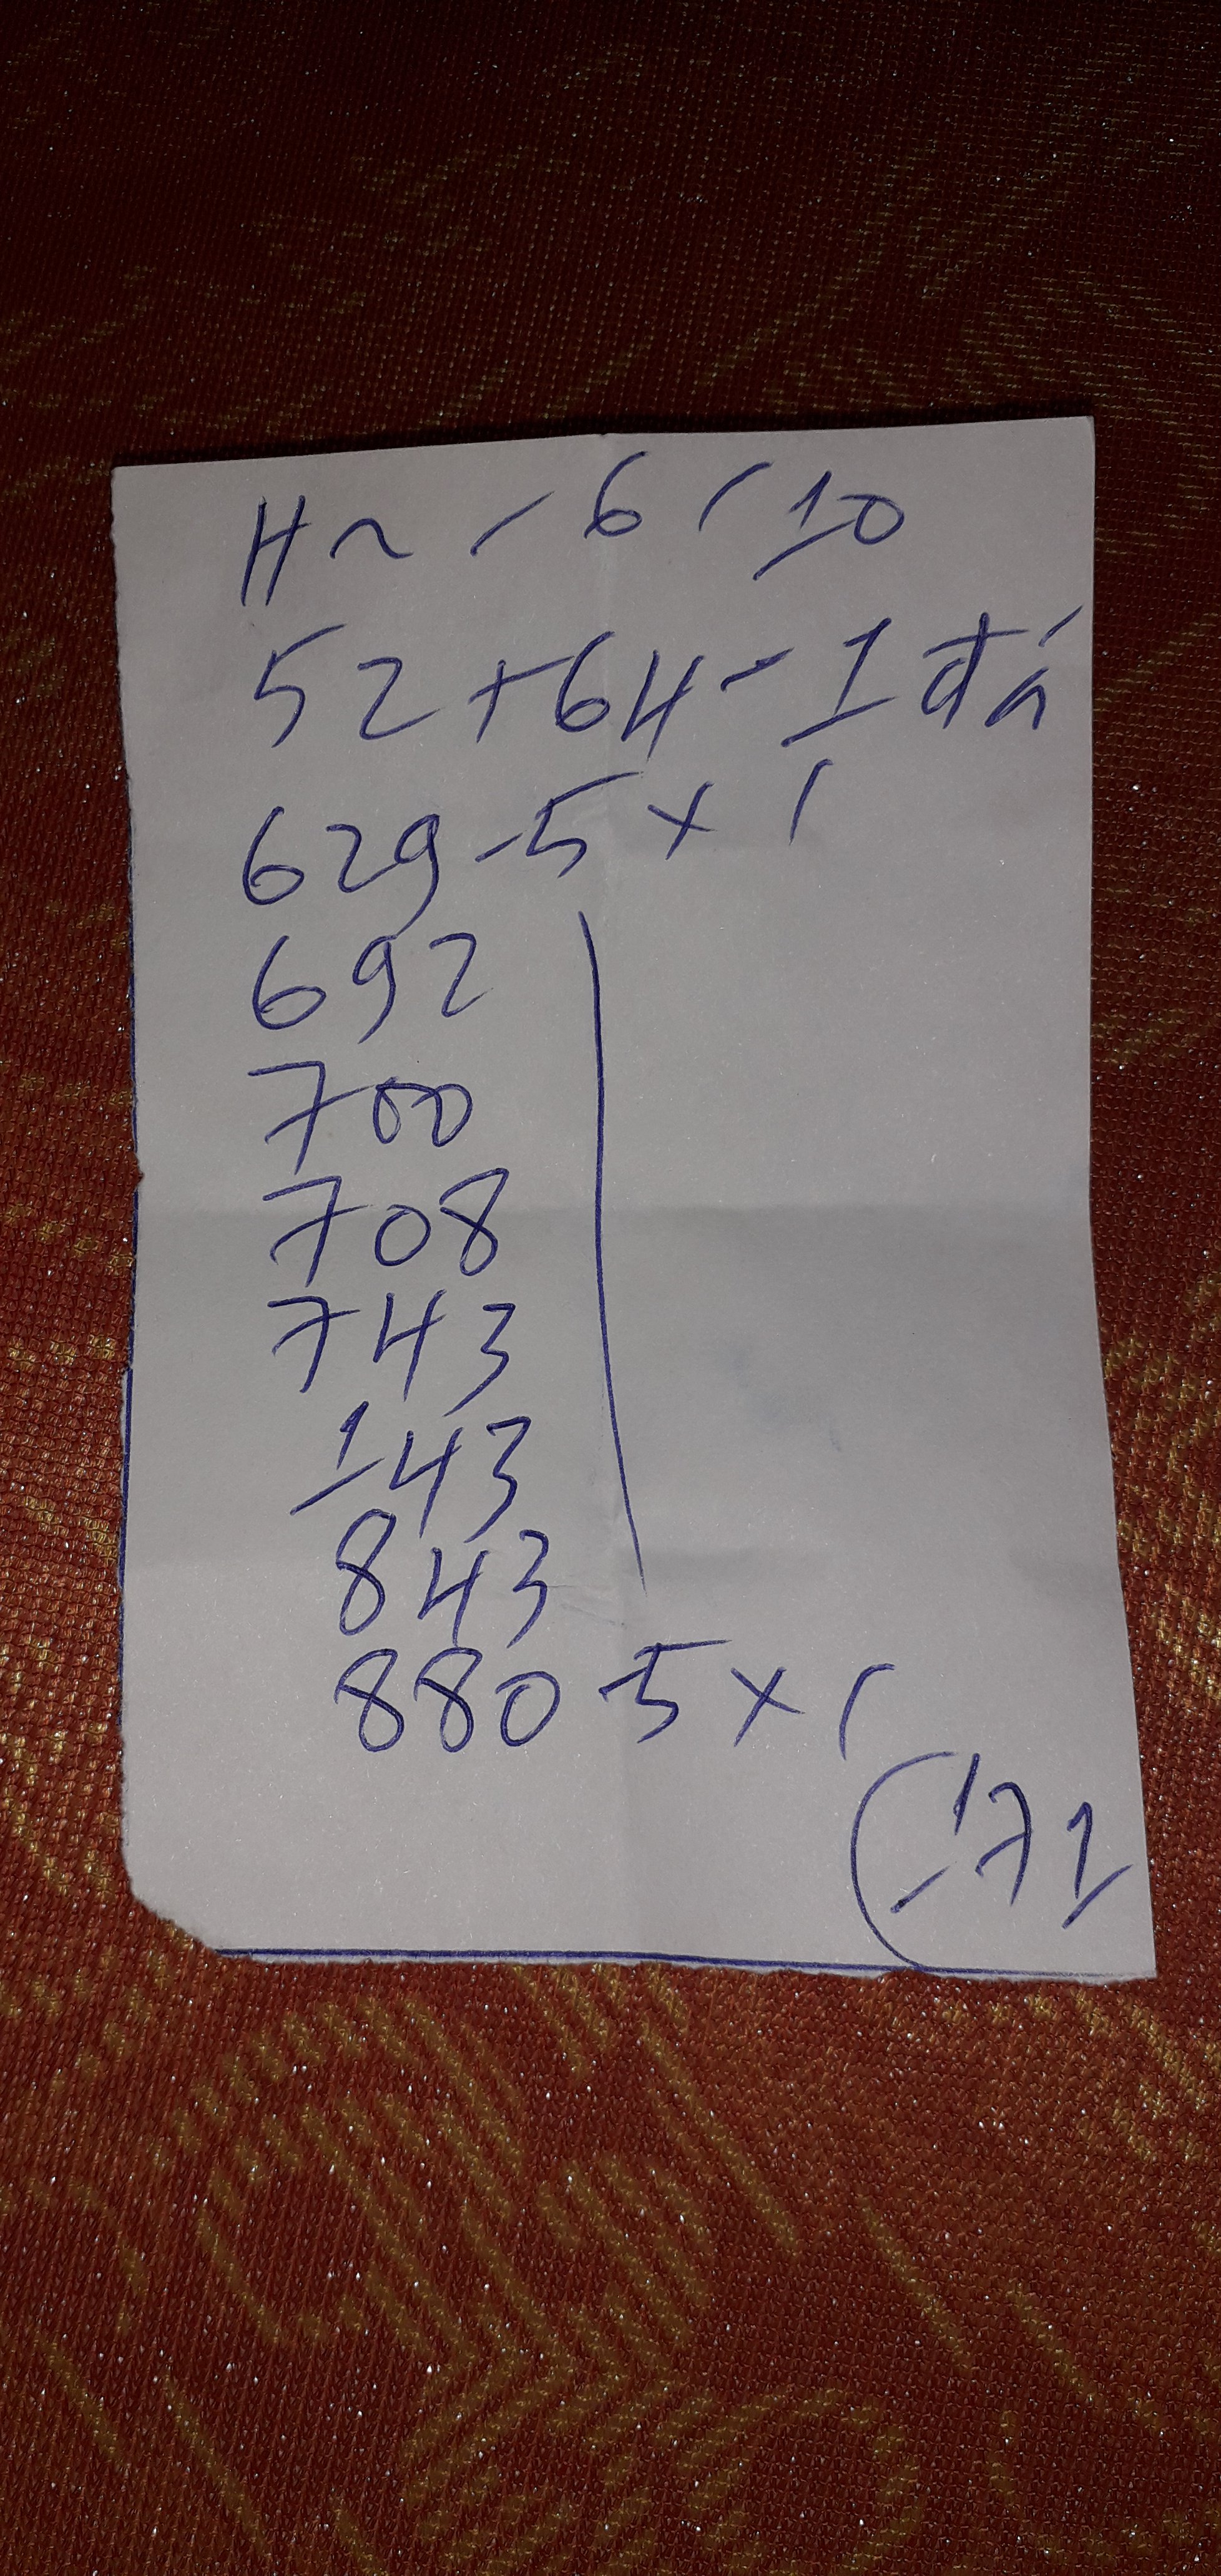 Hn - 6 / 10
52 + 64 - 1 đá
629 - 5 x 1
692
700
708
743
143
843
880 - 5 x 1
171